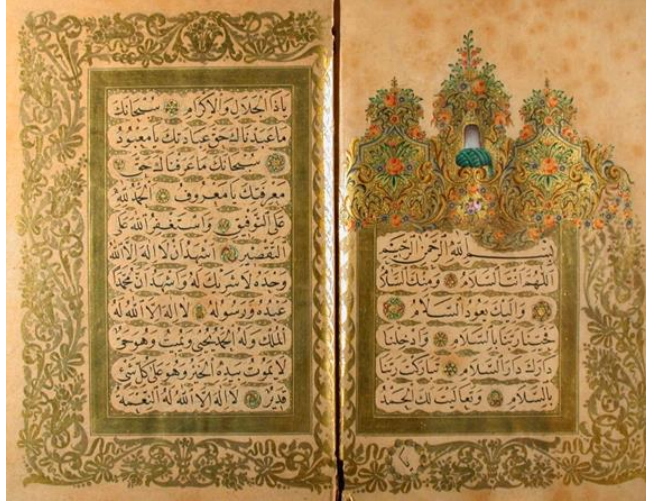 بسم الله الرحمن الرحيم
اللهم انت السلام ومنك السلام
واليك يعود السلام
فحينا ربنا بالسلام وادخلنا
دارك دار السلام تباركت ربنا
بالسلام وتعاليت لك الحمد
ياذا الجلال والاكرام سبحانك
ما عبدناك حق عبادتك يا معبود
سبحانك ما عرفناك حق
معرفتك يا معروف الحمد لله
على التوفيق واستغفر الله على
التقصير اشهد ان لا اله الا الله
وحده لا شريك له واشهد ان محمدا
عبده ورسوله لا اله الا الله له
الملك وله الحمد يحيي ويميت وهو حي
لا يموت بيده الخير وهو على كل شي
قدير لا اله الا الله له النعمة